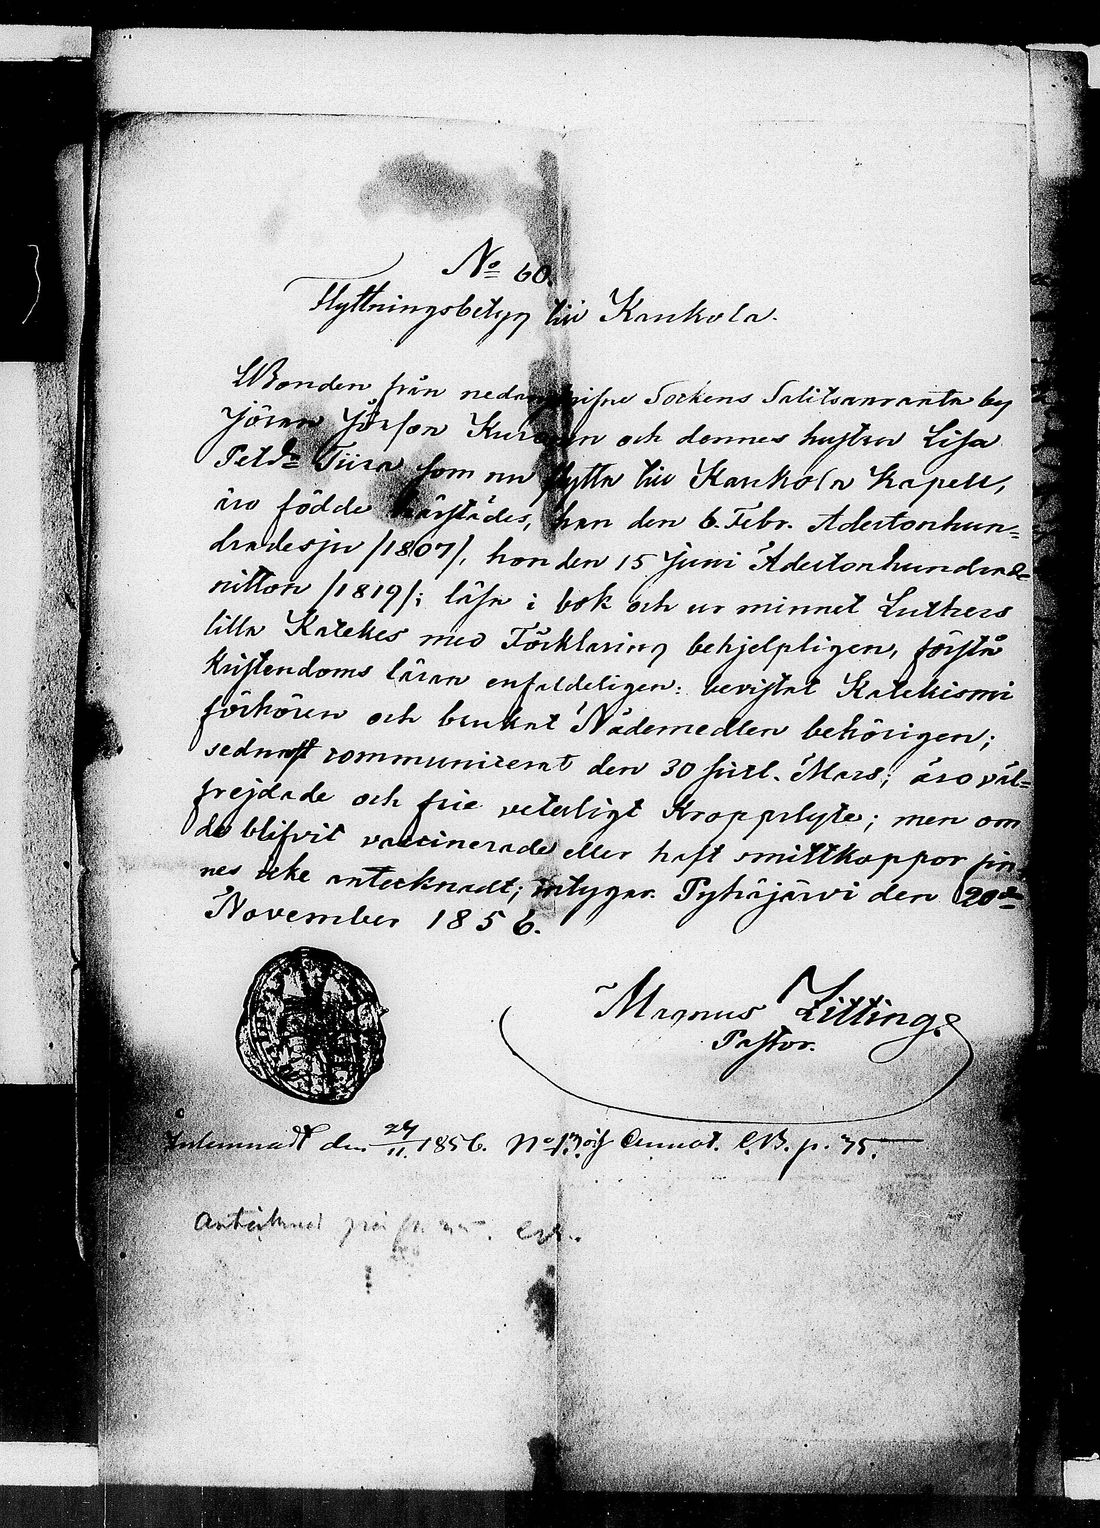 No 60.
Flyttningsbetyg till Kaukola.
Bonden från nedanskrifne Sockens Salitsanranta by
Jöran Jörsson Kuronen och dennes hustru Lisa
Petrd:r Tiira som nu flytta till Kaukola Kapell,
äro födde härstädes, han den 6. Febr. Adertonhun=
dradesju /1807/, hon den 15 Juni Adertonhundrade=
nitton /1819/; läsa i bok och ur minnet Luthers
lilla Katekes med Förklaring behjelpligen, förstå
Kristendoms läran enfaldeligen: bevistat Katekismi
förhören och brukat Nådemedlen behörigen;
sednast communicerat den 30 sistl. Mars; äro väl=
frejdade och frie veterligt Kroppslyte; men om
de blifvit vaccinerade eller haft smittkoppor fin=
nes icke antecknadt; intygar. Pyhäjärvi den 20de
November 1856.
Magnus Zitting.
Pastor.
Inlemnadt den 24/11 1856. No 13 Annot. C.B. p. 75.
Antecknad